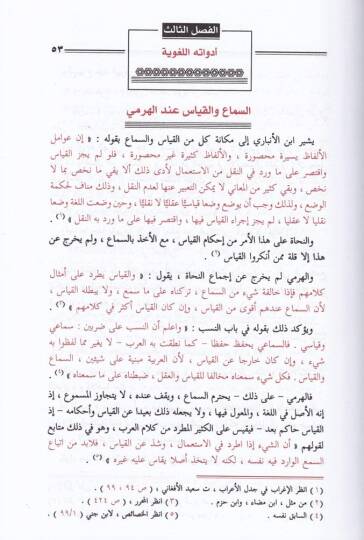 الفصل الثالث
أدواته اللغوية
٥٣
السماع والقياس عند الهرمي
يشير ابن الأنباري إلى مكانة كل من القياس والسماع بقوله : « إن عوامل
الألفاظ يسيرة محصورة ، والألفاظ كثيرة غير محصورة ، فلو لم يجز القياس
واقتصر على ما ورد في النقل من الاستعمال لأدى ذلك ألا يفي ما نخص بما لا
نخص ، وبقي كثير من المعاني لا يمكن التعبير عنها لعدم النقل ، وذلك مناف لحكمة
الوضع ، ولذلك وجب أن يوضع وضعا قياسيًّا عقليًّا لا نقليًّا ، وحين وضعت اللغة وضعا
نقليا لا عقليا ، لم يجز إجراء القياس فيها ، واقتصر فيها على ما ورد به النقل » (١) .
والنحاة على هذا الأمر من إحكام القياس ، مع الأخذ بالسماع ، ولم يخرج عن
هذا إلا قلة ممن أنكروا القياس (٢) .
والهرمي لم يخرج عن إجماع النحاة ، يقول : « والقياس يطرد على أمثال
كلامهم فإذا خالفه شيء من السماع ، تركناه على ما سمع ، ولا يبطله القياس ،
لأن السماع عندهم أقوى من القياس ، وإن كان القياس أكثر في كلامهم » (٣) .
ويؤكد ذلك بقوله في باب النسب : « واعلم أن النسب على ضربين : سماعي
وقياسي . فالسماعي يحفظ حفظا – كما نطقت به العرب – لا يغير مما لفظوا به
شيء ، وإن كان خارجا عن القياس ، لأن العربية مبنية على شيئين ، السماع
والقياس . فكل شيء سمعناه مخالفا للقياس والعقل ، ضبطناه على ما سمعناه » (٤) .
فالهرمي – على ذلك – يحترم السماع ، ويقف عنده ، لا يتجاوز المسموع ، إذ
إنه الأصل في اللغة ، والمعول فيها ، ولا يجعله ذلك بعيدا عن القياس وأحكامه – إذ
القياس حاكم بعد – فيقيس على الكثير المطرد من كلام العرب ، وهو في ذلك متابع
لقولهم « أن الشيء إذا اطرد في الاستعمال ، وشذ عن القياس ، فلابد من اتباع
السمع الوارد فيه نفسه ، لكنه لا يتخذ أصلا يقاس عليه غيره » (٥) .
(١) انظر الإغراب في جدل الأعراب ، ت سعيد الأفغاني ، ( ص ٩٤ ، ٩٩ ) .
(٢) من مثل ، ابن مضاء ، وابن حزم .
(٣) انظر المحرر ، ( ص ٤٢٤ ) .
(٤) السابق نفسه .
(٥) انظر الخصائص ، لابن جني ( ٩٩/١ ) .